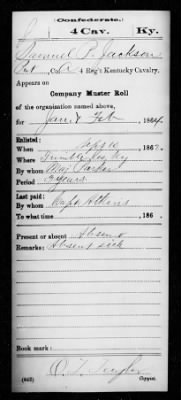 (Confederate.)
J 4 Cav. Ky.
Samuel P. Jackson
Pvt, Co. 4 Reg't Kentucky Cavalry.
Appears on
Company Muster Roll
of the organization named above,
for Jan & Feb, 1864.
Enlisted:
When Sept 10, 1862.
Where Trimble Co, Ky
By whom Maj. Parker
Period 3 years
Last paid:
By whom Capt Adkins
To what time , 186 .
Present or absent Absent
Remarks: Absent sick
Book mark:
(642) Copyist.